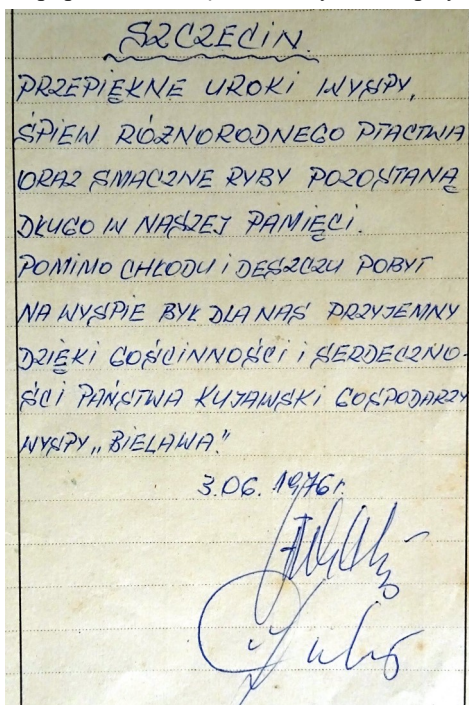 SZCZECIN.
PRZEPIĘKNE UROKI WYSPY,
ŚPIEW RÓŻNORODNEGO PTACTWA
ORAZ SMACZNE RYBY POZOSTANĄ
DŁUGO W NASZEJ PAMIĘCI.
POMIMO CHŁODU I DESZCZU POBYT
NA WYSPIE BYŁ DLA NAS PRZYJEMNY
DZIĘKI GOŚCINNOŚCI I SERDECZNO-
ŚCI PAŃSTWA KUJAWSKI GOSPODARZY
WYSPY „BIELAWA."
3.06.1976r.